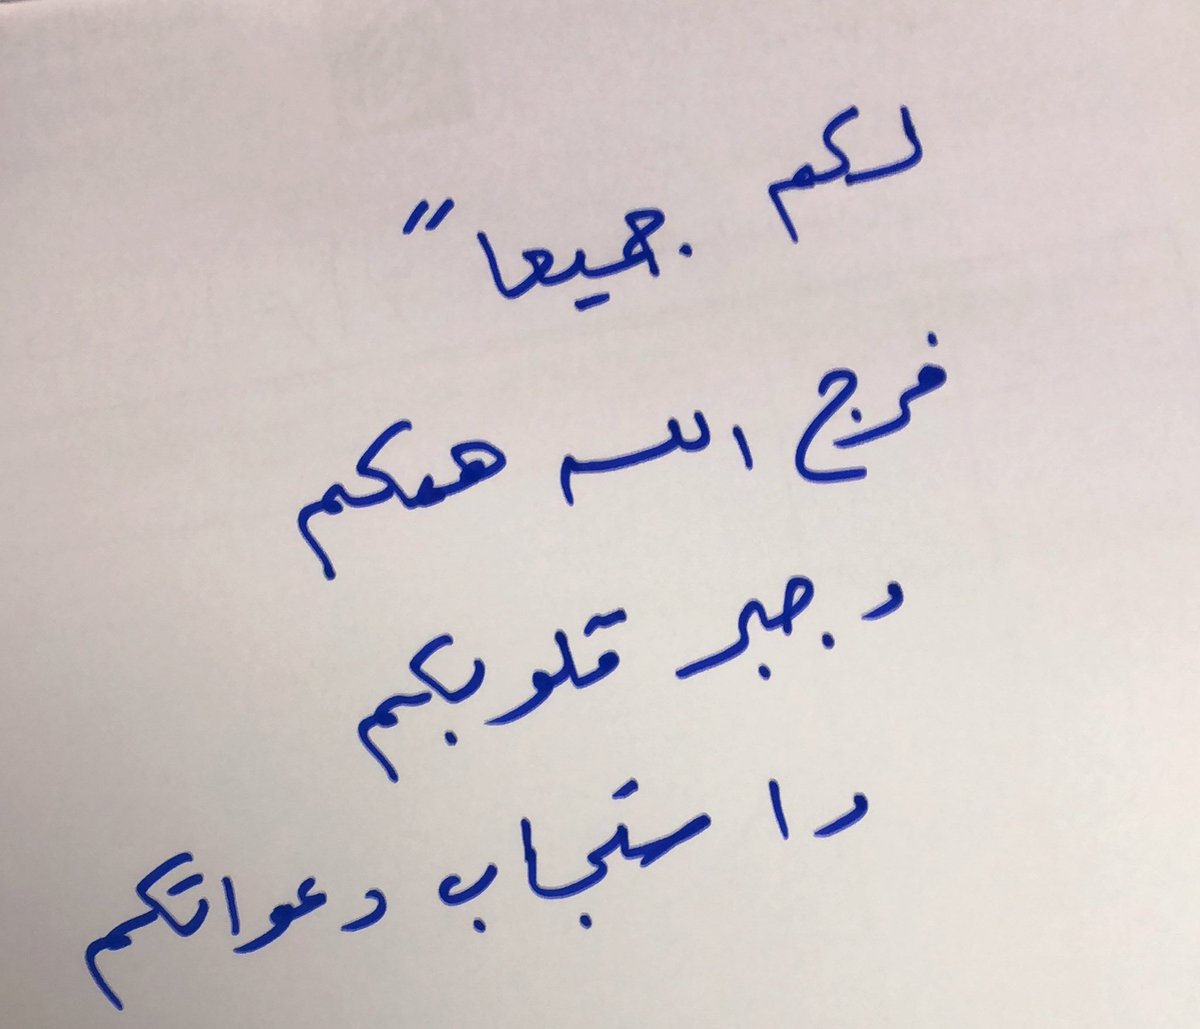 لكم جميعاً
فرج الله همكم
وجبر قلوبكم
واستجاب دعواتكم